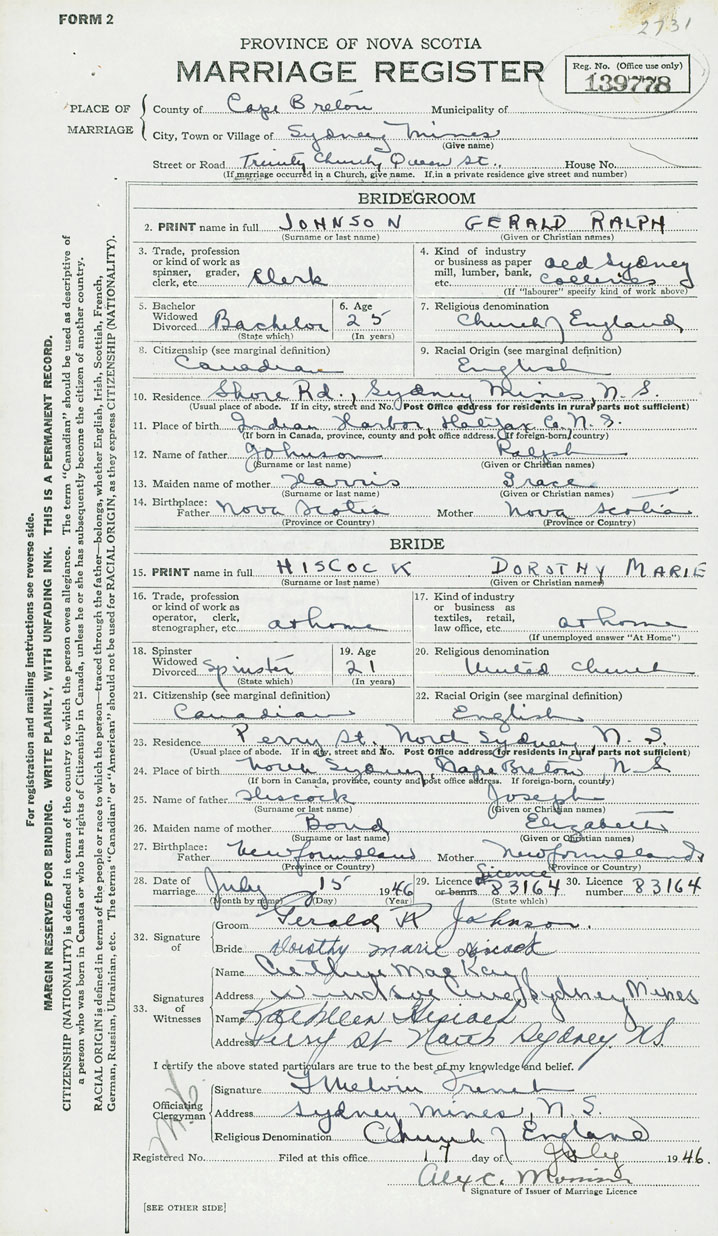 FORM 2
2731
PROVINCE OF NOVA SCOTIA
MARRIAGE REGISTER
Reg. No. (Office use only)
139778
PLACE OF MARRIAGE
County of Cape Breton Municipality of
City, Town or Village of Sydney Mines
(Give name)
Street or Road Trinity Church, Queen St., House No.
(If marriage occurred in a Church, give name. If in a private residence give street and number)
BRIDEGROOM
2. PRINT name in full JOHNSON GERALD RALPH
(Surname or last name) (Given or Christian names)
3. Trade, profession or kind of work as spinner, grader, clerk, etc. Clerk
4. Kind of industry or business as paper mill, lumber, bank, etc. Old Sydney Collieries
(If "labourer" specify kind of work above)
5. Bachelor Widowed Divorced Bachelor
(State which)
6. Age 25
(In years)
7. Religious denomination Church of England
8. Citizenship (see marginal definition) Canadian
9. Racial Origin (see marginal definition) English
10. Residence Shore Rd., Sydney Mines, N.S.
(Usual place of abode. If in city, street and No. Post Office address for residents in rural parts not sufficient)
11. Place of birth Indian Harbor, Halifax Co. N.S.
(If born in Canada, province, county and post office address. If foreign-born, country)
12. Name of father Johnson Ralph
(Surname or last name) (Given or Christian names)
13. Maiden name of mother Harris Grace
(Surname or last name) (Given or Christian names)
14. Birthplace: Father Nova Scotia Mother Nova Scotia
(Province or Country) (Province or Country)
BRIDE
15. PRINT name in full HISCOCK DOROTHY MARIE
(Surname or last name) (Given or Christian names)
16. Trade, profession or kind of work as operator, clerk, stenographer, etc. at home
17. Kind of industry or business as textiles, retail, law office, etc. at home
(If unemployed answer "At Home")
18. Spinster Widowed Divorced Spinster
(State which)
19. Age 21
(In years)
20. Religious denomination United Church
21. Citizenship (see marginal definition) Canadian
22. Racial Origin (see marginal definition) English
23. Residence Perry St. Nord Sydney, N.S.
(Usual place of abode. If in city, street and No. Post Office address for residents in rural parts not sufficient)
24. Place of birth Sydney, Cape Breton, N.S
(If born in Canada, province, county and post office address. If foreign-born, country)
25. Name of father Hiscock Joseph
(Surname or last name) (Given or Christian names)
26. Maiden name of mother Bond Elizabeth
(Surname or last name) (Given or Christian names)
27. Birthplace: Father Newfoundland Mother Newfoundland
(Province or Country) (Province or Country)
28. Date of marriage July 15 1946
(Month by name) (Day) (Year)
29. Licence or banns Licence 83164
(State which)
30. Licence number 83164
32. Signature of
Groom Gerald R Johnson.
Bride Dorothy Marie Hiscock
33. Signatures of Witnesses
Name Arthur MacKay
Address Sydney Mines
Name Kathleen Hiscock
Address Perry St North Sydney, N.S.
I certify the above stated particulars are true to the best of my knowledge and belief.
Officiating Clergyman
Signature Melvin French
Address Sydney Mines, N.S.
Religious Denomination Church of England
Registered No. Filed at this office 17 day of July 1946.
Alex C. Morrison
Signature of Issuer of Marriage Licence
[SEE OTHER SIDE]
For registration and mailing instructions see reverse side.
MARGIN RESERVED FOR BINDING. WRITE PLAINLY, WITH UNFADING INK. THIS IS A PERMANENT RECORD.
CITIZENSHIP (NATIONALITY) is defined in terms of the country to which the person owes allegiance. The term "Canadian" should be used as descriptive of
a person who was born in Canada or who has rights of Citizenship in Canada, unless he or she has subsequently become the citizen of another country.
RACIAL ORIGIN is defined in terms of the people or race to which the person—traced through the father—belongs, whether English, Irish, Scottish, French,
German, Russian, Ukrainian, etc. The terms "Canadian" or "American" should not be used for RACIAL ORIGIN, as they express CITIZENSHIP (NATIONALITY).